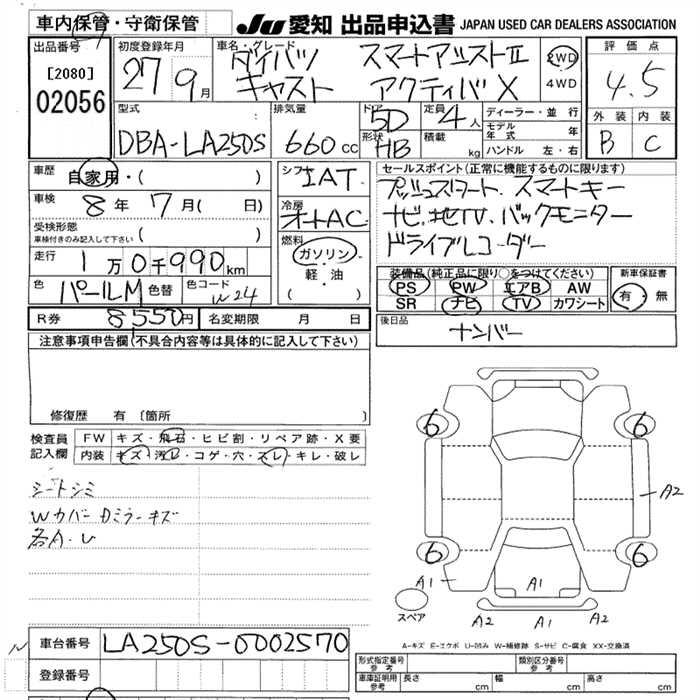 車内保管・守衛保管
JU 愛知 出品申込書 JAPAN USED CAR DEALERS ASSOCIATION
出品番号
[2080]
02056
初度登録年月
27 9月
車名・グレード
ダイハツ スマートアシストⅡ
キャスト アクティバX
2WD
4WD
評価点
4.5
外装 内装
B C
型式
DBA-LA250S
排気量
660cc
ドア
5D
形状
HB
定員
4人
積載
kg
ディーラー・並行
モデル年式 年
ハンドル 左・右
車歴
自家用・( )
車検 8年 7月( 日)
受検形態
車検付きのみ記入して下さい ( )
走行 1万0千990km
色 パールM 色替 色コード W24
シフト
IAT
冷房
オートAC
燃料
ガソリン
軽・油
( )
セールスポイント(正常に機能するものに限ります)
プッシュスタート、スマートキー
ナビ、地TV、バックモニター
ドライブレコーダー
装備品(純正品に限り○をつけてください)
PS PW エアB AW
SR ナビ TV カワシート
新車保証書
有・無
R券 8550円 名変期限 月 日
後日品
ナンバー
注意事項申告欄(不具合内容等は具体的に記入して下さい)
修復歴 有 〔箇所 〕
検査員記入欄
FW キズ・飛石・ヒビ割・リペア跡・X要
内装 キズ・汚レ・コゲ・穴・スレ・キレ・破レ
シートシミ
Wカバー Dミラーキズ
各A.U
6 6
A2
6 6
A1 A1
スペア
A2 A1 A2
A-キズ E-エクボ U-凹み W-補修跡 S-サビ C-腐食 XX-交換済
車台番号 LA250S-0002570
登録番号
形式指定番号
参考
類別区分番号
参考
車庫証明用
参考
長さ cm 幅 cm 高さ cm